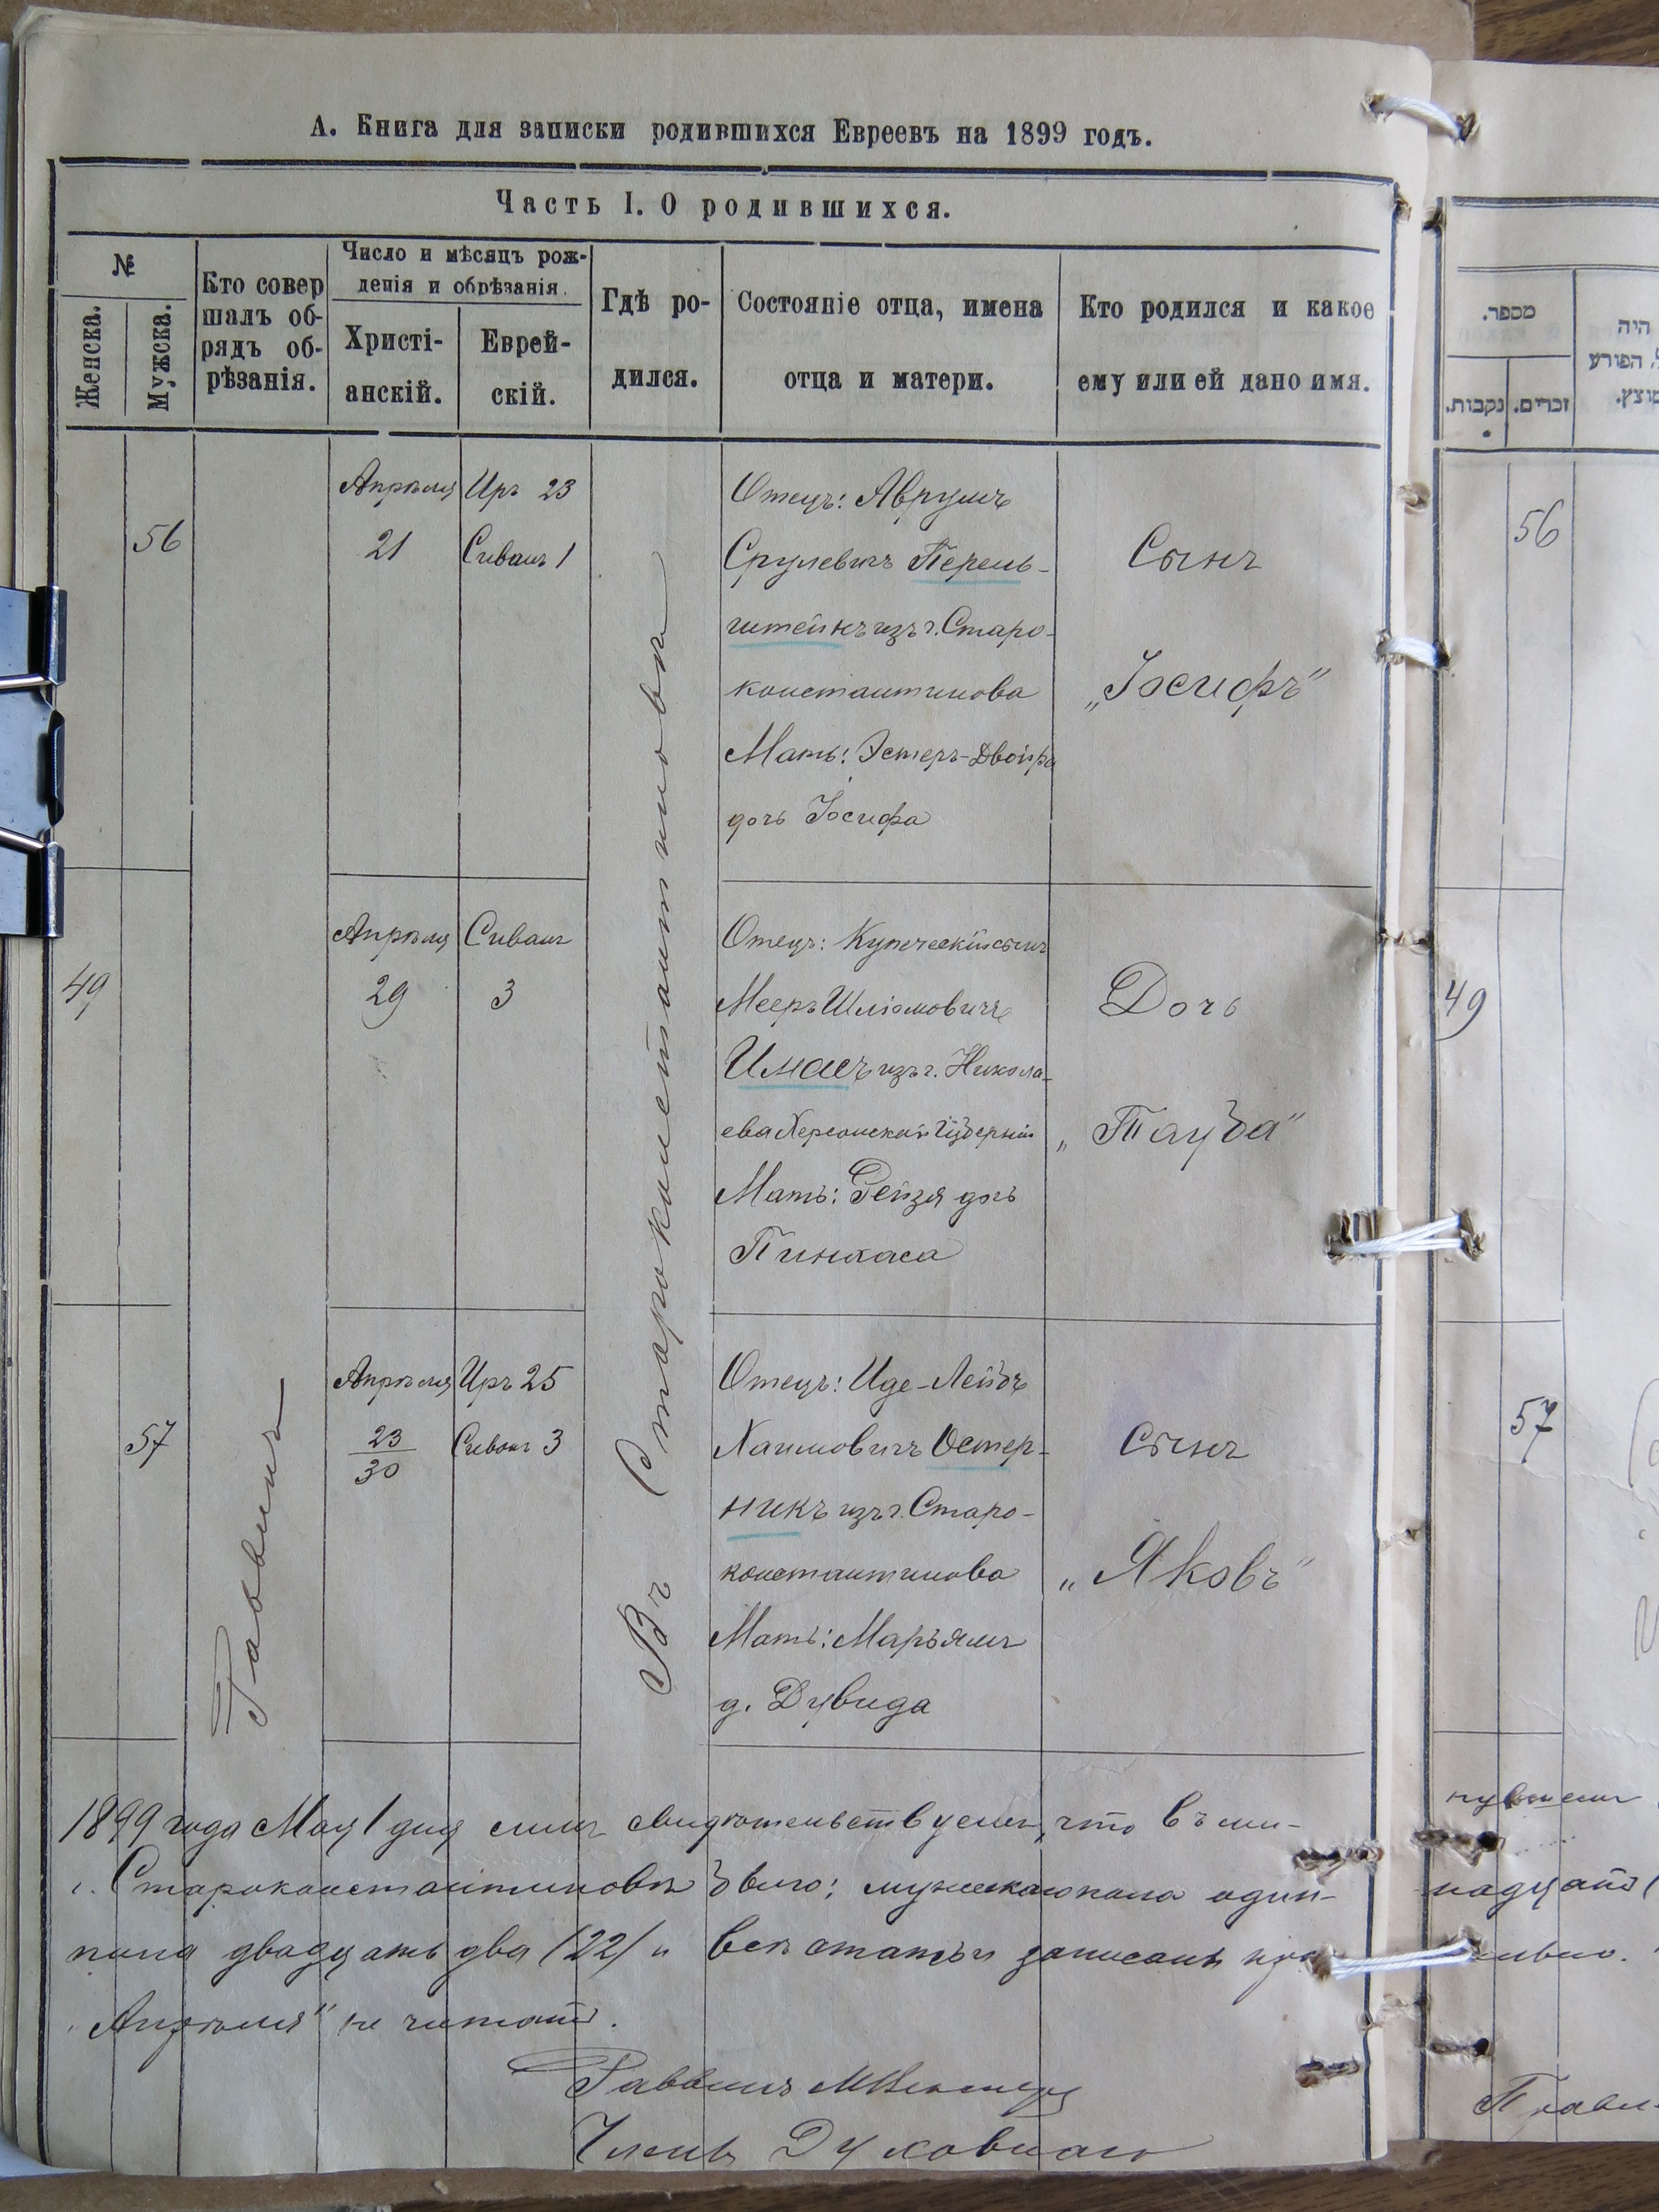 А. Книга для записки родившихся Евреевъ на 1899 годъ.
Часть I. О родившихся.
№
Женска.
Мужска.
Кто совер
шалъ об-
рядъ об-
рѣзанія.
Число и мѣсяцъ рож-
денія и обрѣзанія.
Христі-
анскій.
Еврей-
скій.
Гдѣ ро-
дился.
Состояніе отца, имена
отца и матери.
Кто родился и какое
ему или ей дано имя.
56
Апрѣля
21
Иръ 23
Сиванъ 1
Отецъ: Аврумъ
Срулевичъ Перель-
штейнъ изъ г. Старо-
константинова
Мать: Эстеръ-Двойра
дочь Іосифа
Сынъ
„Іосифъ"
49
Апрѣля
29
Сиванъ
3
Отецъ: Купеческій сынъ
Мееръ Шліомовичъ
Имасъ изъ г. Никола-
ева Херсонской Губерніи
Мать: Рейзя дочь
Пинхаса
Дочь
„Тауба"
57
Раввинъ
Апрѣля
23
30
Иръ 25
Сиванъ 3
Въ Староконстантиновѣ
Отецъ: Иде-Лейбъ
Хаимовичъ Остер-
никъ изъ г. Старо-
константинова
Мать: Марьямъ
д. Дувида
Сынъ
„Яковъ"
1899 года Мая 1 дня симъ свидѣтельствуемъ, что въ ми-
г. Староконстантиновѣ было: мужскаго пола один-
пола двадцать два /22/ и всѣ статьи записаны
„Апрѣля" не читать.
Раввинъ
Члены Духовнаго
מספר.
נקבות.
זכרים.
היה
הפורע
56
49
57
нувшемъ
надцать